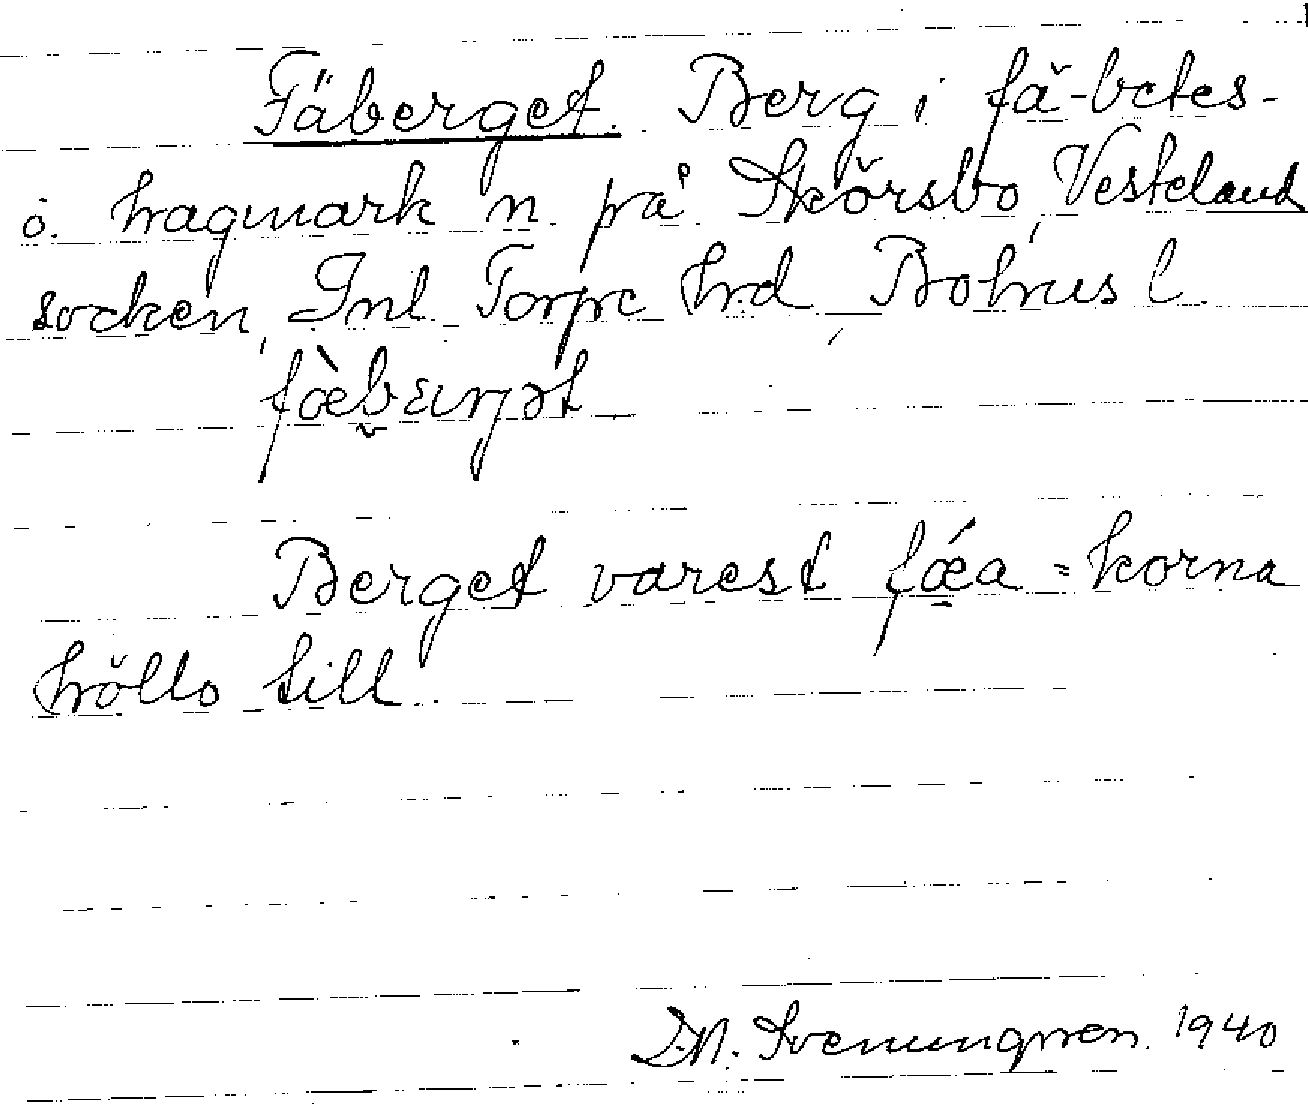 Fäberget. Berg i fä-betes-
o. hagmark n. på Skörsbo, Vesteland
socken, Inl. Torpe hrd, Bohus l.
fæ̀bærjət
Berget varest fǽa = korna
höllo till.
D.N. Svenungsson. 1940